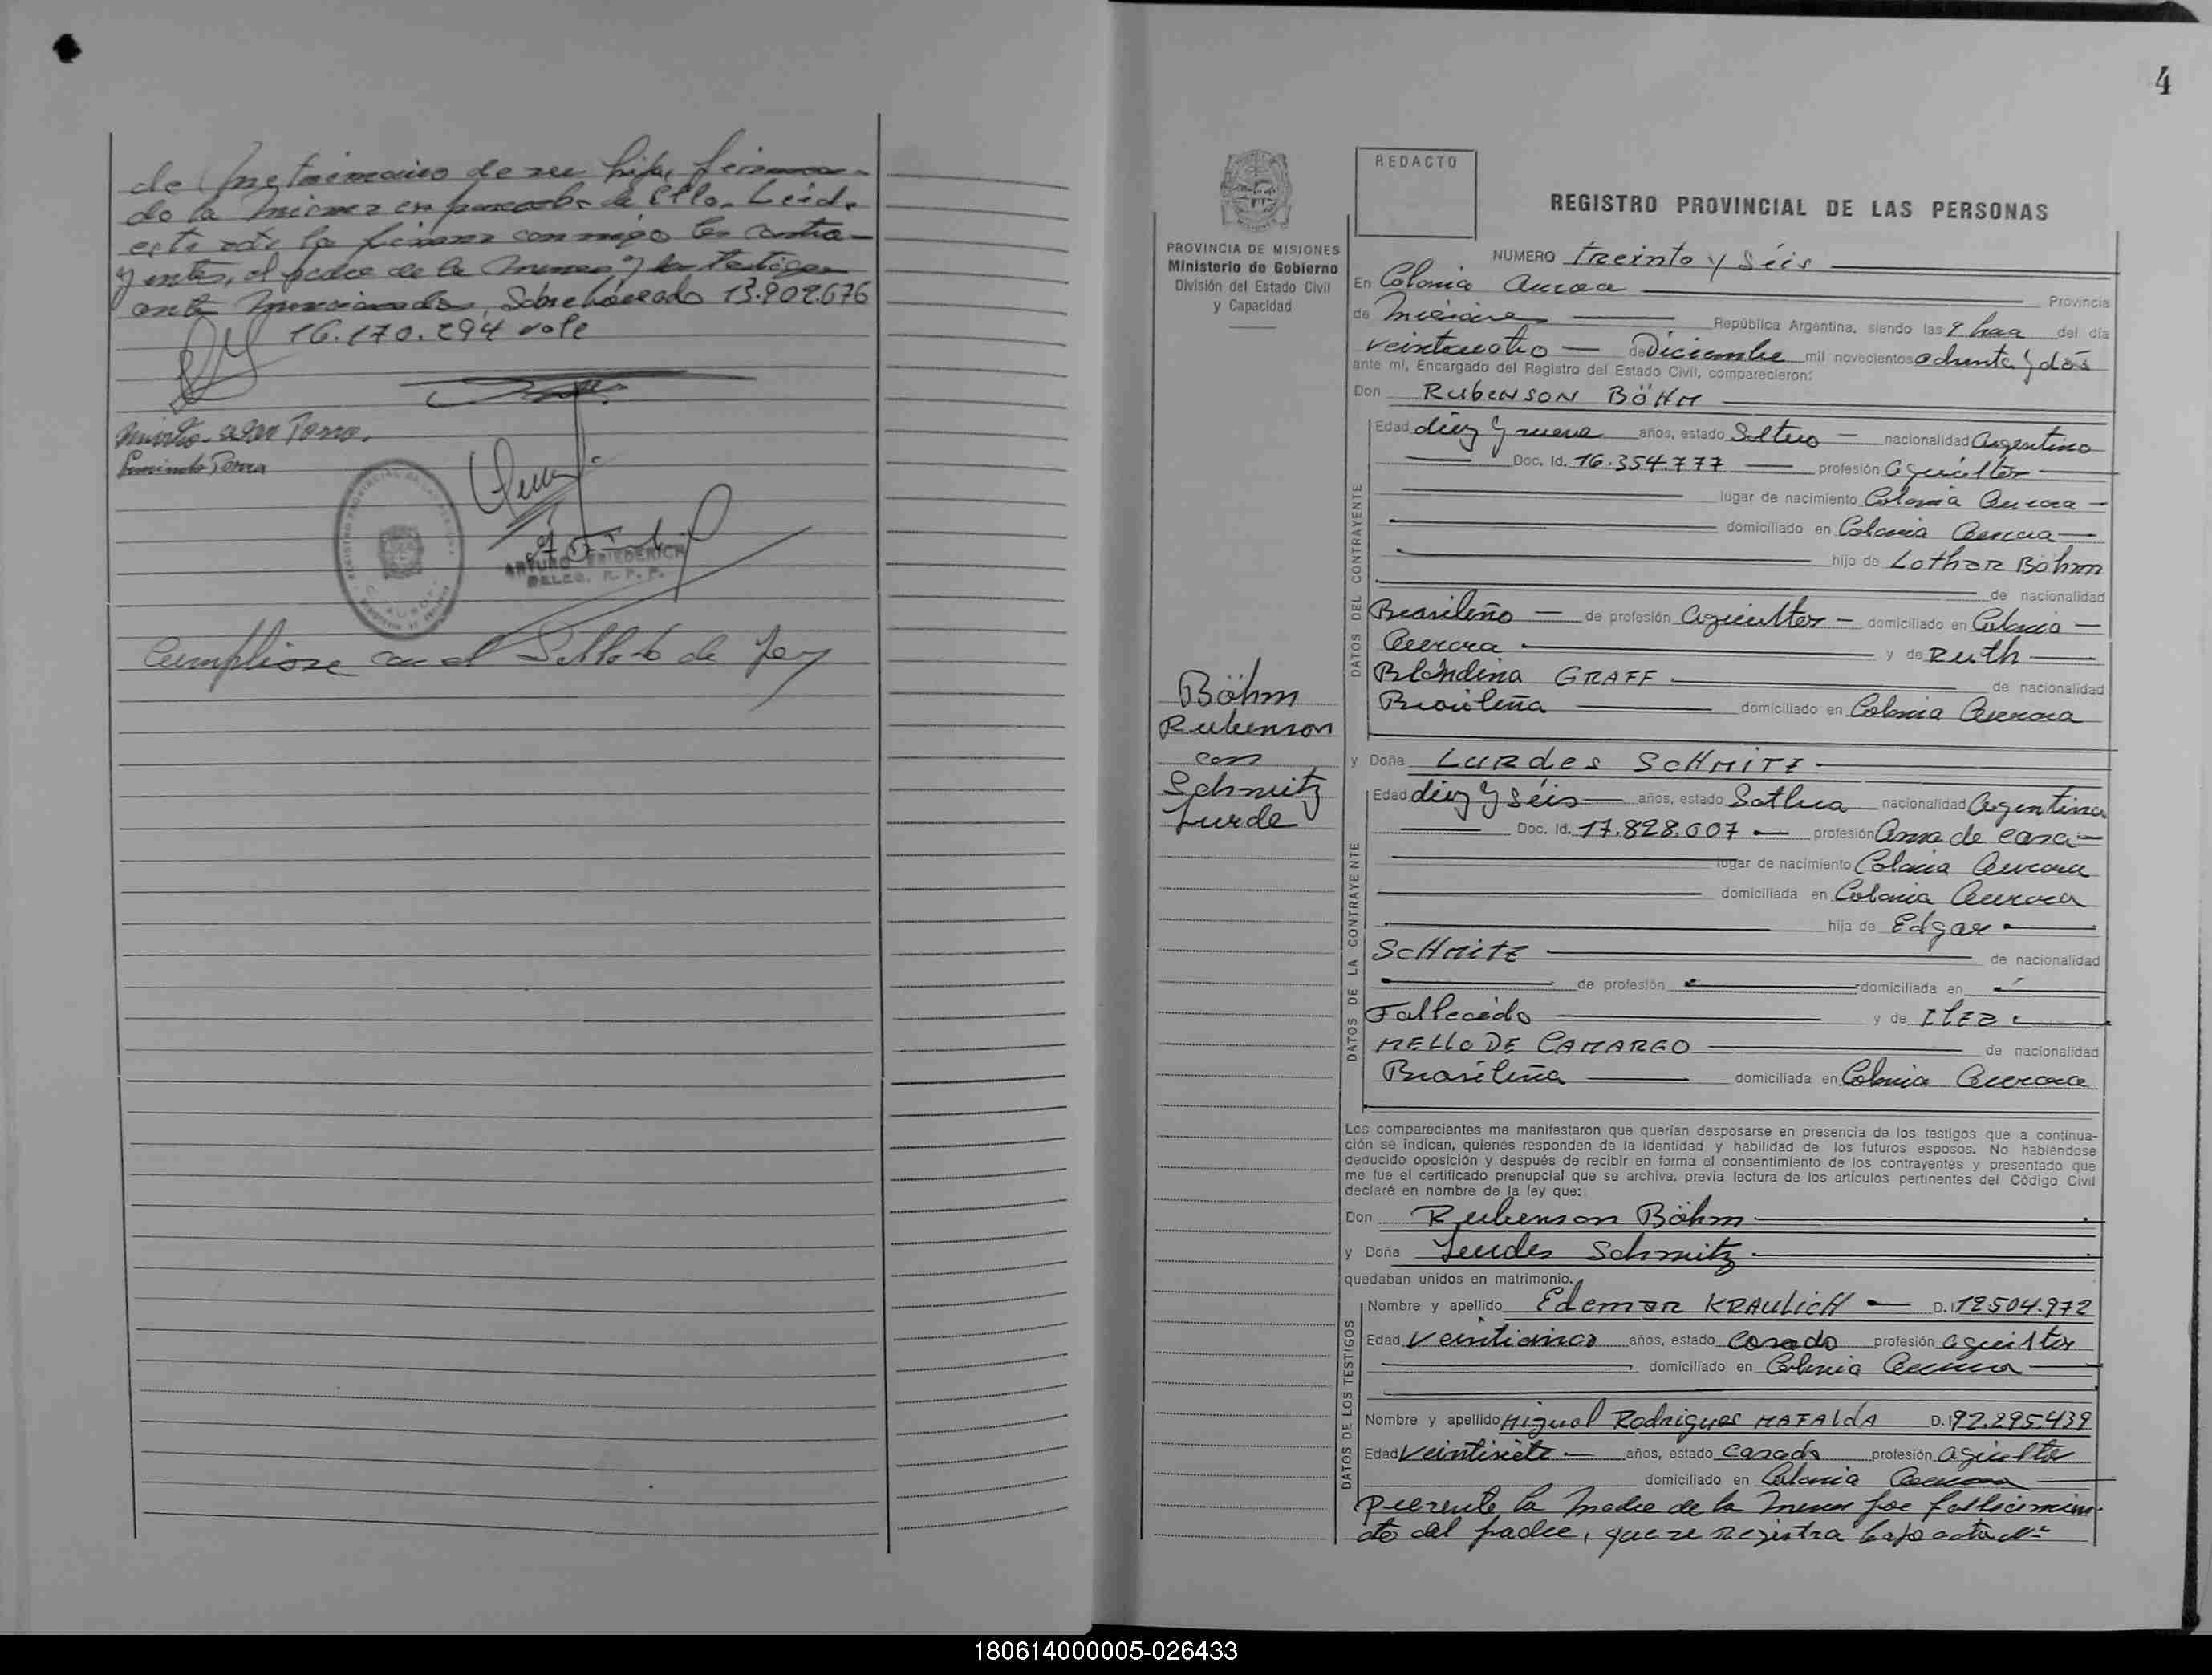 de matrimonio de su hija, firman-
do la misma en prueba de Ello. Leida
esta acta la firman conmigo los contra-
yentes, el padre de la menor y los Testigos
ante mencionados, Sobre líneado 13.902.676
16.170.294 vale
ARTURO FRIEDERICH
DELEG. R. P. P.
Cumpliose con el Sellado de Ley
4
REDACTO
REGISTRO PROVINCIAL DE LAS PERSONAS
PROVINCIA DE MISIONES
Ministerio de Gobierno
División del Estado Civil
y Capacidad
NUMERO Treinta y Séis
En Colonia Aurora Provincia
de Misiones República Argentina, siendo las 9 horas del día
veinticuatro de Diciembre mil novecientos ochenta y dos
ante mí, Encargado del Registro del Estado Civil, comparecieron:
Don RUBENSON BÖHM
DATOS DEL CONTRAYENTE
Edad diez y nueve años, estado Soltero nacionalidad Argentino
Doc. Id. 16.354.777 profesión agricultor
lugar de nacimiento Colonia Aurora
domiciliado en Colonia Aurora
hijo de Lothar Böhm
de nacionalidad
Brasileño de profesión agricultor domiciliado en Colonia
Aurora y de Ruth
Blandina GRAFF de nacionalidad
Brasileña domiciliado en Colonia Aurora
Böhm
Rubenson
con
Schmitz
Lurde
y Doña LURDES SCHMITZ
DATOS DE LA CONTRAYENTE
Edad diez y séis años, estado Soltera nacionalidad Argentina
Doc. Id. 17.828.007 profesión Ama de casa
lugar de nacimiento Colonia Aurora
domiciliada en Colonia Aurora
hija de Edgar
SCHMITZ de nacionalidad
de profesión domiciliada en
Fallecido y de ILZA
MELLO DE CAMARGO de nacionalidad
Brasileña domiciliada en Colonia Aurora
Los comparecientes me manifestaron que querían desposarse en presencia de los testigos que a continua-
ción se indican, quienés responden de la identidad y habilidad de los futuros esposos. No habiéndose
deducido oposición y después de recibir en forma el consentimiento de los contrayentes y presentado que
me fue el certificado prenupcial que se archiva, previa lectura de los artículos pertinentes del Código Civil
declaré en nombre de la ley que:
Don Rubenson Böhm
y Doña Lurdes Schmitz
quedaban unidos en matrimonio.
DATOS DE LOS TESTIGOS
Nombre y apellido Edemar KRAULICH D.I 12.504.972
Edad Veinticinco años, estado Casado profesión agricultor
domiciliado en Colonia Aurora
Nombre y apellido Miguel Rodrigues MAFALDA D.I 92.295.439
Edad Veintisiete años, estado Casado profesión agricultor
domiciliado en Colonia Aurora
Presente la madre de la menor por fallecimien-
to del padre, que se registra bajo acta Nº
180614000005-026433